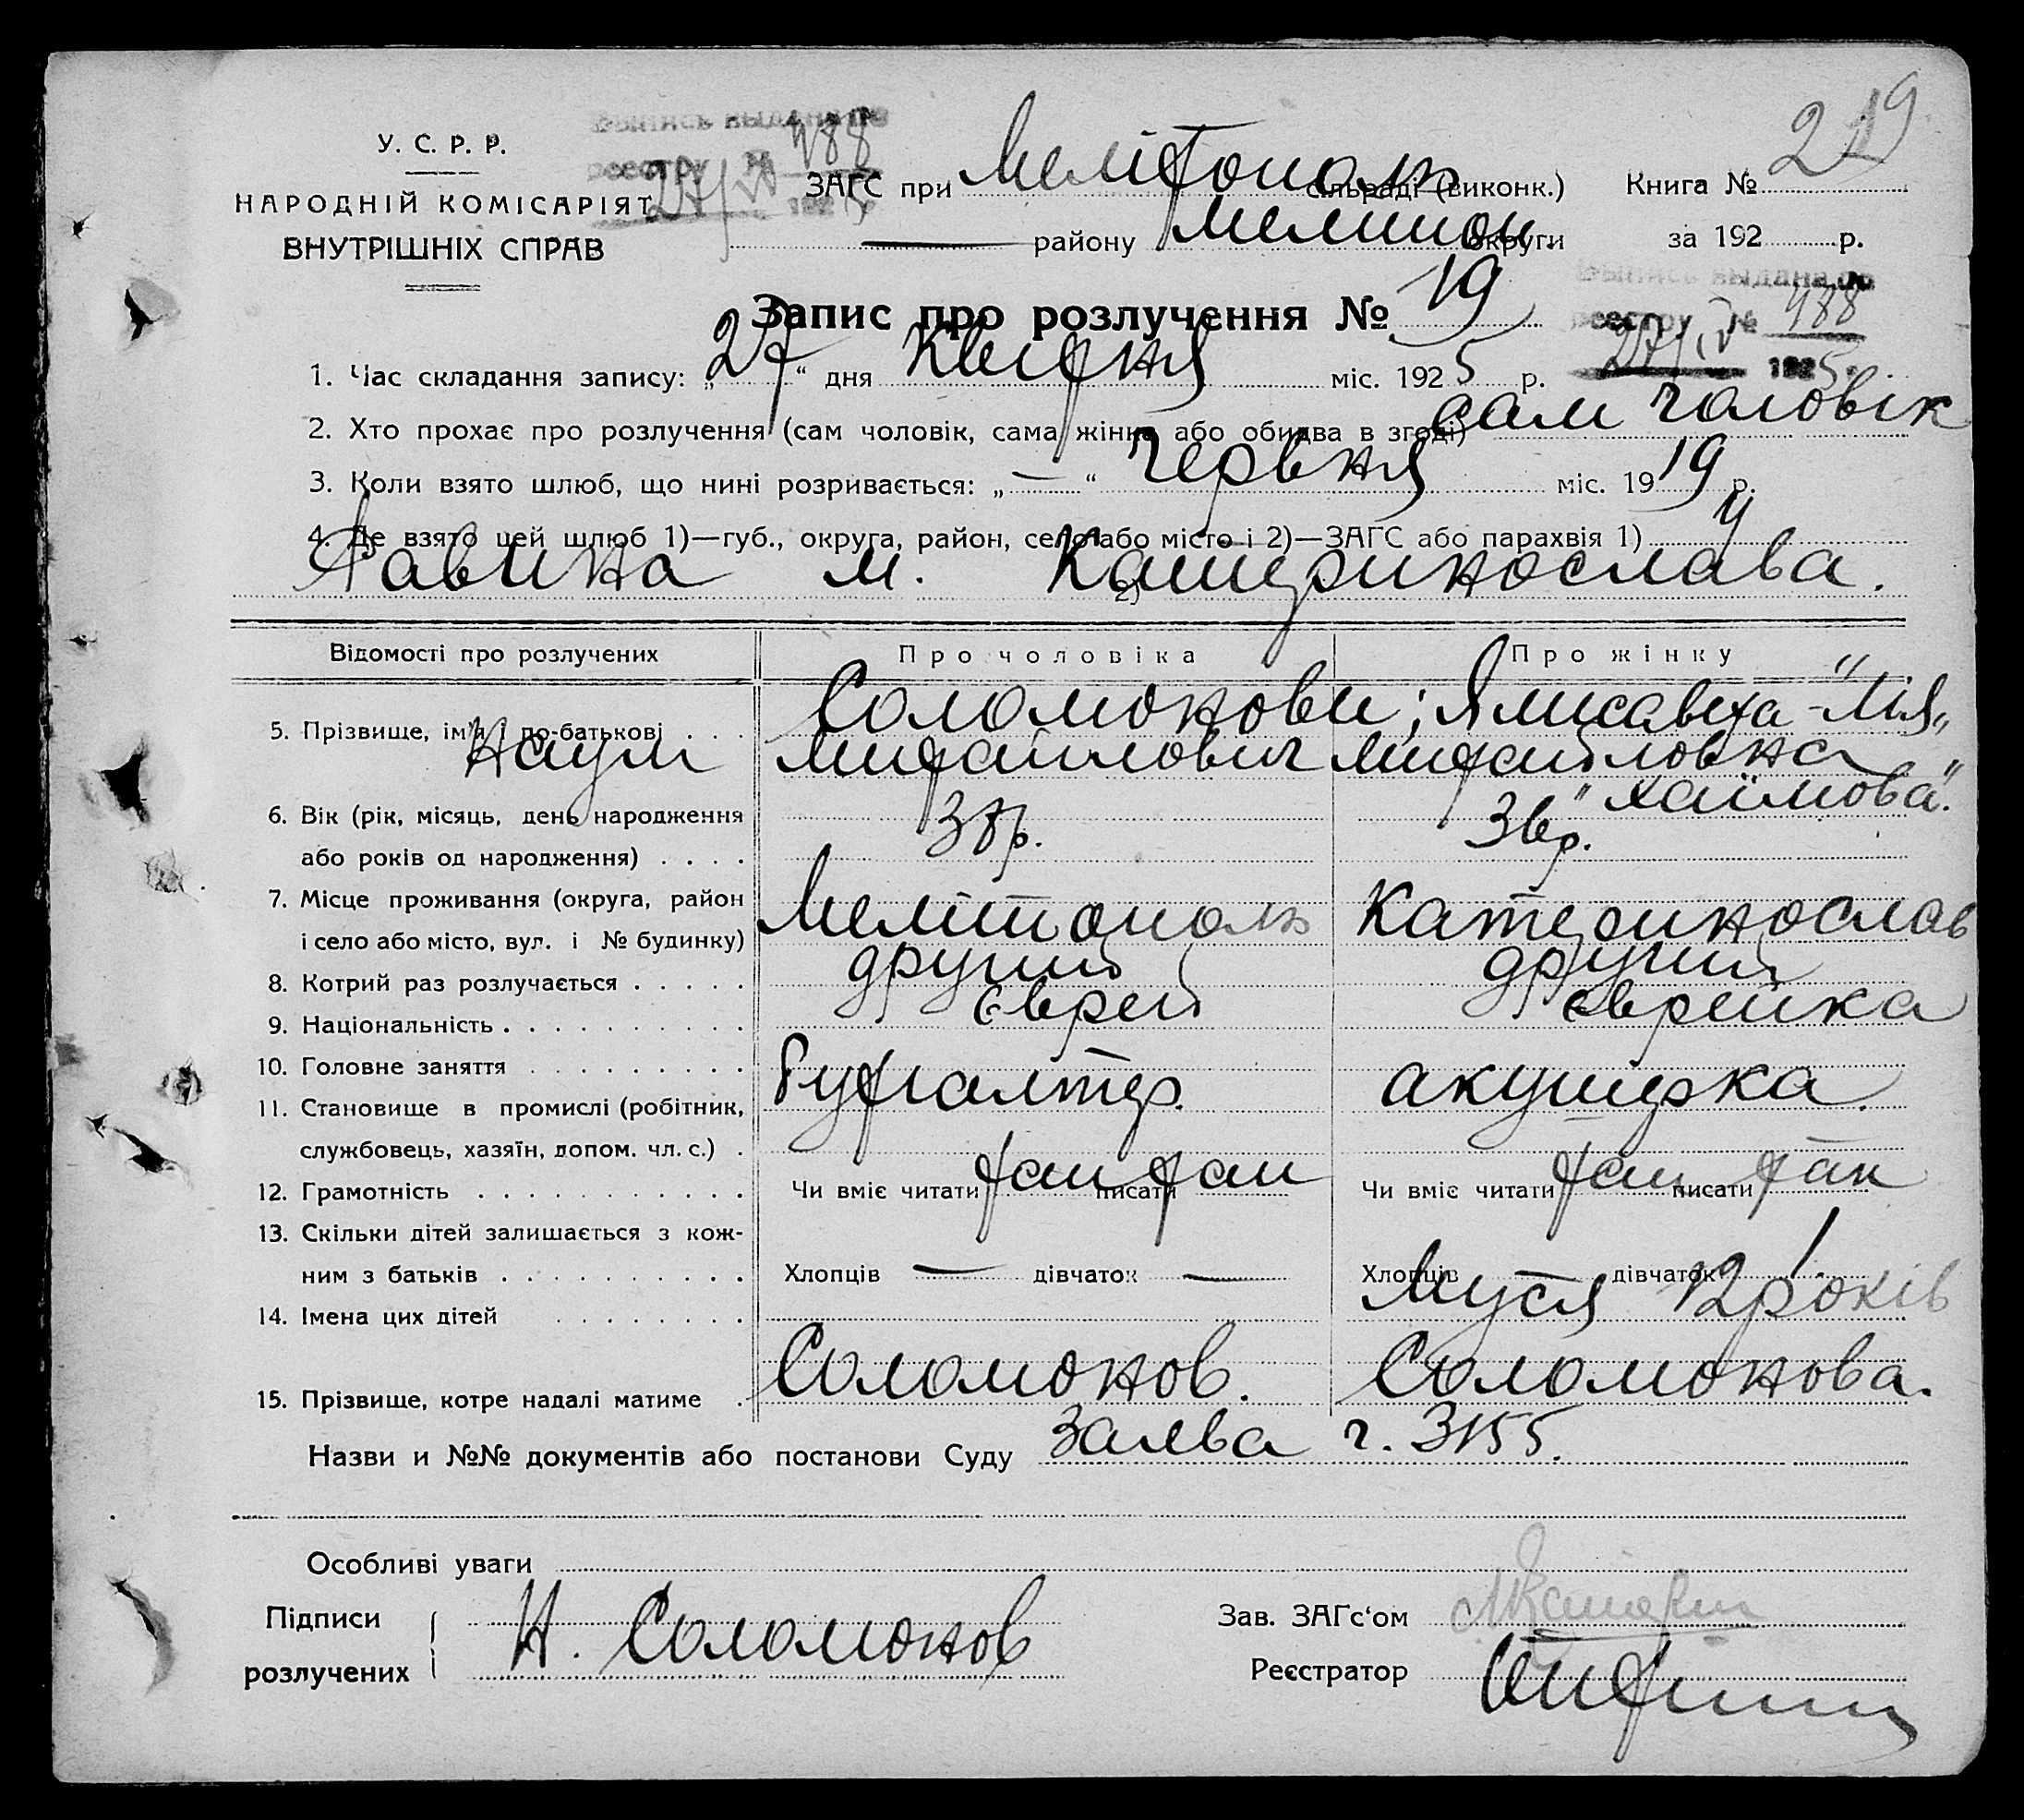 У. С. Р. Р.
НАРОДНІЙ КОМІСАРІЯТ
ВНУТРІШНІХ СПРАВ
Выпись выдана по
реестру № 488
27/IV 1925
ЗАГС при Мелітополь сільраді (виконк.)
— району Мелитоп. округи
Книга № 219
за 192 р.
Выпись выдана по
реестру № 488
27/IV 1925
Запис про розлучення № 19
1. Час складання запису: „27“ дня Квітня міс. 1925 р.
2. Хто прохає про розлучення (сам чоловік, сама жінка або обидва в згоді) сам чоловік
3. Коли взято шлюб, що нині розривається: „—“ Червня міс. 1919 р.
4. Де взято цей шлюб 1)—губ., округа, район, село або місто і 2)—ЗАГС або парахвія 1) У
Равина м. Катеринослава.
2)
Відомості про розлучених Про чоловіка Про жінку
5. Прізвище, ім'я і по-батькові Соломонови; Єлисавета - "Лія"
Наум Михайлович Михайловна
"Хаімова"
6. Вік (рік, місяць, день народження
або років од народження) 38р. 36р.
7. Місце проживання (округа, район
і село або місто, вул. і № будинку) Мелітополь Катеринослав
8. Котрий раз розлучається другий другий
9. Національність Єврей Єврейка
10. Головне заняття Бухгалтер. акушерка.
11. Становище в промислі (робітник,
службовець, хазяїн, допом. чл. с.)
12. Грамотність Чи вміє читати так писати так Чи вміє читати так писати так
13. Скільки дітей залишається з кож-
ним з батьків Хлопців — дівчаток — Хлопців дівчаток 1
14. Імена цих дітей Муся 12 років
15. Прізвище, котре надалі матиме Соломонов. Соломонова.
Назви и №№ документів або постанови Суду Заява ч. 3155.
Особливі уваги
Підписи
розлучених Н. Соломонов
Зав. ЗАГс‘ом
Реєстратор